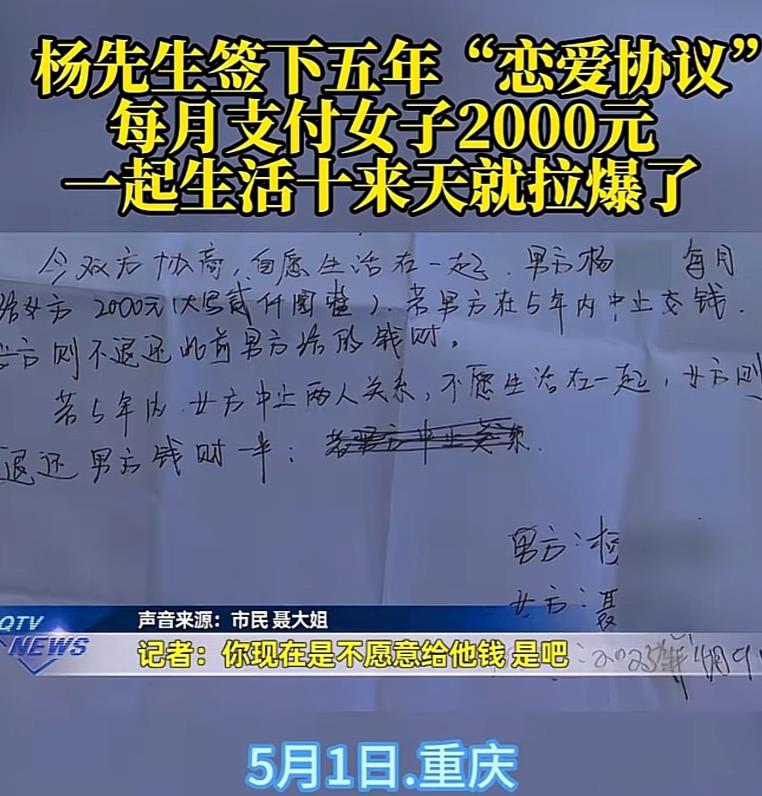 杨先生签下五年“恋爱协议”
每月支付女子2000元
一起生活十来天就拉爆了
今双方协商,自愿生活在一起.男方杨 每月
给女方2000元(大写贰仟圆整).若男方在5年内中止交钱.
女方则不退还此前男方给的钱财。
若5年内.女方中止两人关系,不愿生活在一起,女方则
退还男方钱财一半;
男方:杨
女方:聂
QTV
NEWS
声音来源:市民 聂大姐
记者:你现在是不愿意给他钱 是吧
5月1日.重庆